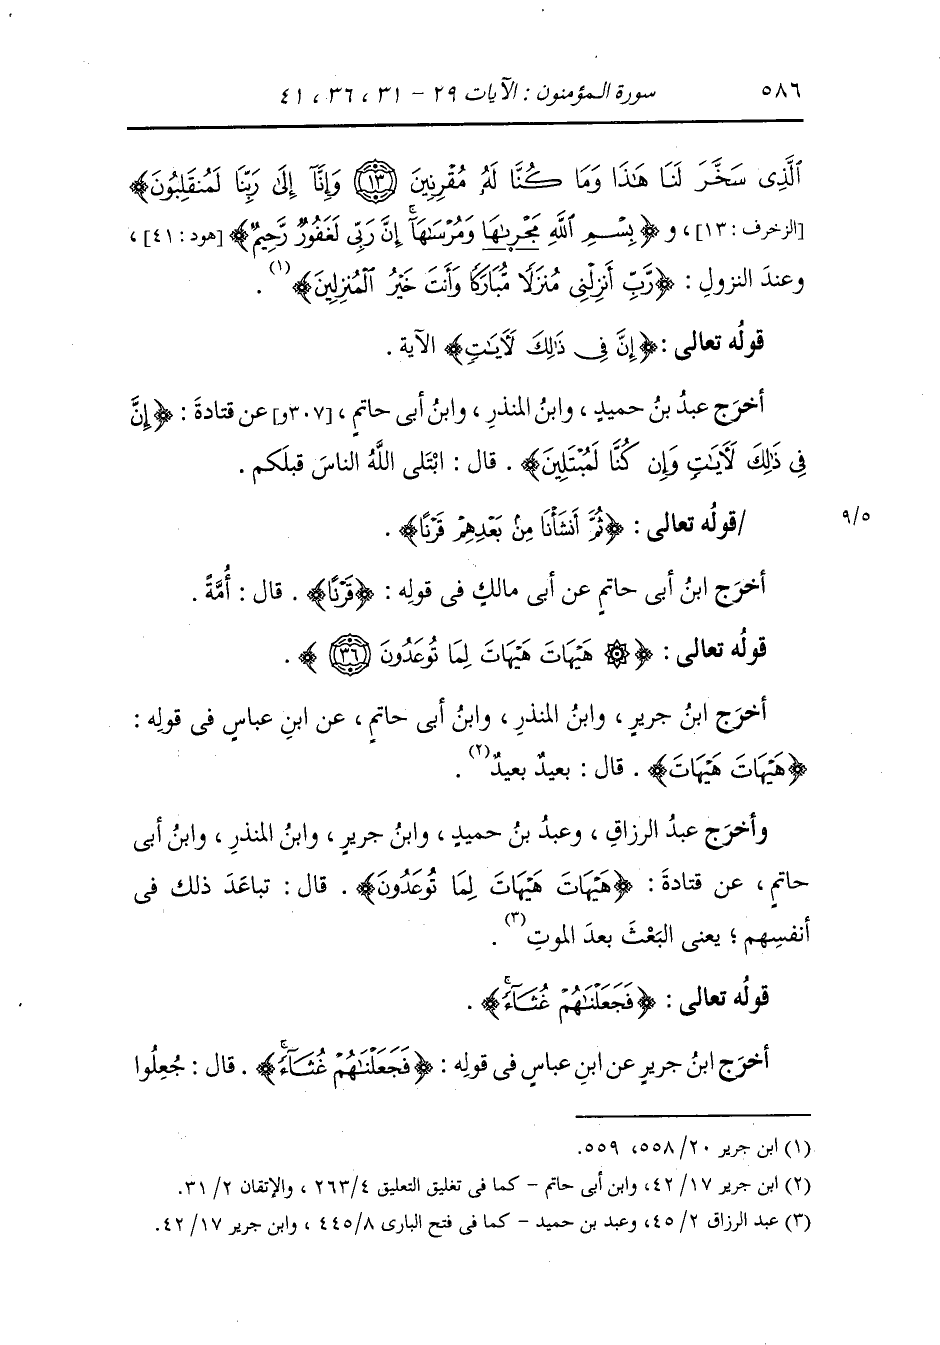 ٥٨٦ سورة المؤمنون : الآيات ٢٩ - ٣١ ، ٣٦ ، ٤١
ٱلَّذِى سَخَّرَ لَنَا هَٰذَا وَمَا كُنَّا لَهُۥ مُقْرِنِينَ ﴿١٣﴾ وَإِنَّآ إِلَىٰ رَبِّنَا لَمُنقَلِبُونَ﴾
[الزخرف : ١٣] ، و ﴿بِسْمِ ٱللَّهِ مَجْرٜىٰهَا وَمُرْسَىٰهَآۚ إِنَّ رَبِّى لَغَفُورٌ رَّحِيمٌ﴾ [هود : ٤١] ،
وعندَ النزولِ : ﴿رَّبِّ أَنزِلْنِى مُنزَلًا مُّبَارَكًا وَأَنتَ خَيْرُ ٱلْمُنزِلِينَ﴾(١) .
قولُه تعالى : ﴿إِنَّ فِى ذَٰلِكَ لَأٓيَٰتٍ﴾ الآية .
أخرَج عبدُ بنُ حميدٍ ، وابنُ المنذرِ ، وابنُ أبى حاتمٍ ، [٣٠٧و] عن قتادةَ : ﴿إِنَّ
فِى ذَٰلِكَ لَأٓيَٰتٍ وَإِن كُنَّا لَمُبْتَلِينَ﴾ . قال : ابْتَلى اللَّهُ الناسَ قبلَكم .
/قولُه تعالى : ﴿ثُمَّ أَنشَأْنَا مِنۢ بَعْدِهِمْ قَرْنًا﴾ . ٩/٥
أخرَج ابنُ أبى حاتمٍ عن أبى مالكٍ فى قولِه : ﴿قَرْنًا﴾ . قال : أُمَّةً .
قولُه تعالى : ﴿۞ هَيْهَاتَ هَيْهَاتَ لِمَا تُوعَدُونَ ﴿٣٦﴾ ﴾ .
أخرَج ابنُ جريرٍ ، وابنُ المنذرِ ، وابنُ أبى حاتمٍ ، عن ابنِ عباسٍ فى قولِه :
﴿هَيْهَاتَ هَيْهَاتَ﴾ . قال : بعيدٌ بعيدٌ(٢) .
وأخرَج عبدُ الرزاقِ ، وعبدُ بنُ حميدٍ ، وابنُ جريرٍ ، وابنُ المنذرِ ، وابنُ أبى
حاتمٍ ، عن قتادةَ : ﴿هَيْهَاتَ هَيْهَاتَ لِمَا تُوعَدُونَ﴾ . قال : تباعَدَ ذلك فى
أنفسِهم ؛ يعنى البَعْثَ بعدَ الموتِ(٣) .
قولُه تعالى : ﴿فَجَعَلْنَٰهُمْ غُثَآءًۚ﴾ .
أخرَج ابنُ جريرٍ عن ابنِ عباسٍ فى قولِه : ﴿فَجَعَلْنَٰهُمْ غُثَآءًۚ﴾ . قال : جُعِلُوا
(١) ابن جرير ٢٠/ ٥٥٨، ٥٥٩.
(٢) ابن جرير ١٧/ ٤٢، وابن أبى حاتم - كما فى تغليق التعليق ٤/ ٢٦٣ ، والإتقان ٢/ ٣١.
(٣) عبد الرزاق ٢/ ٤٥، وعبد بن حميد - كما فى فتح البارى ٨/ ٤٤٥ ، وابن جرير ١٧/ ٤٢.